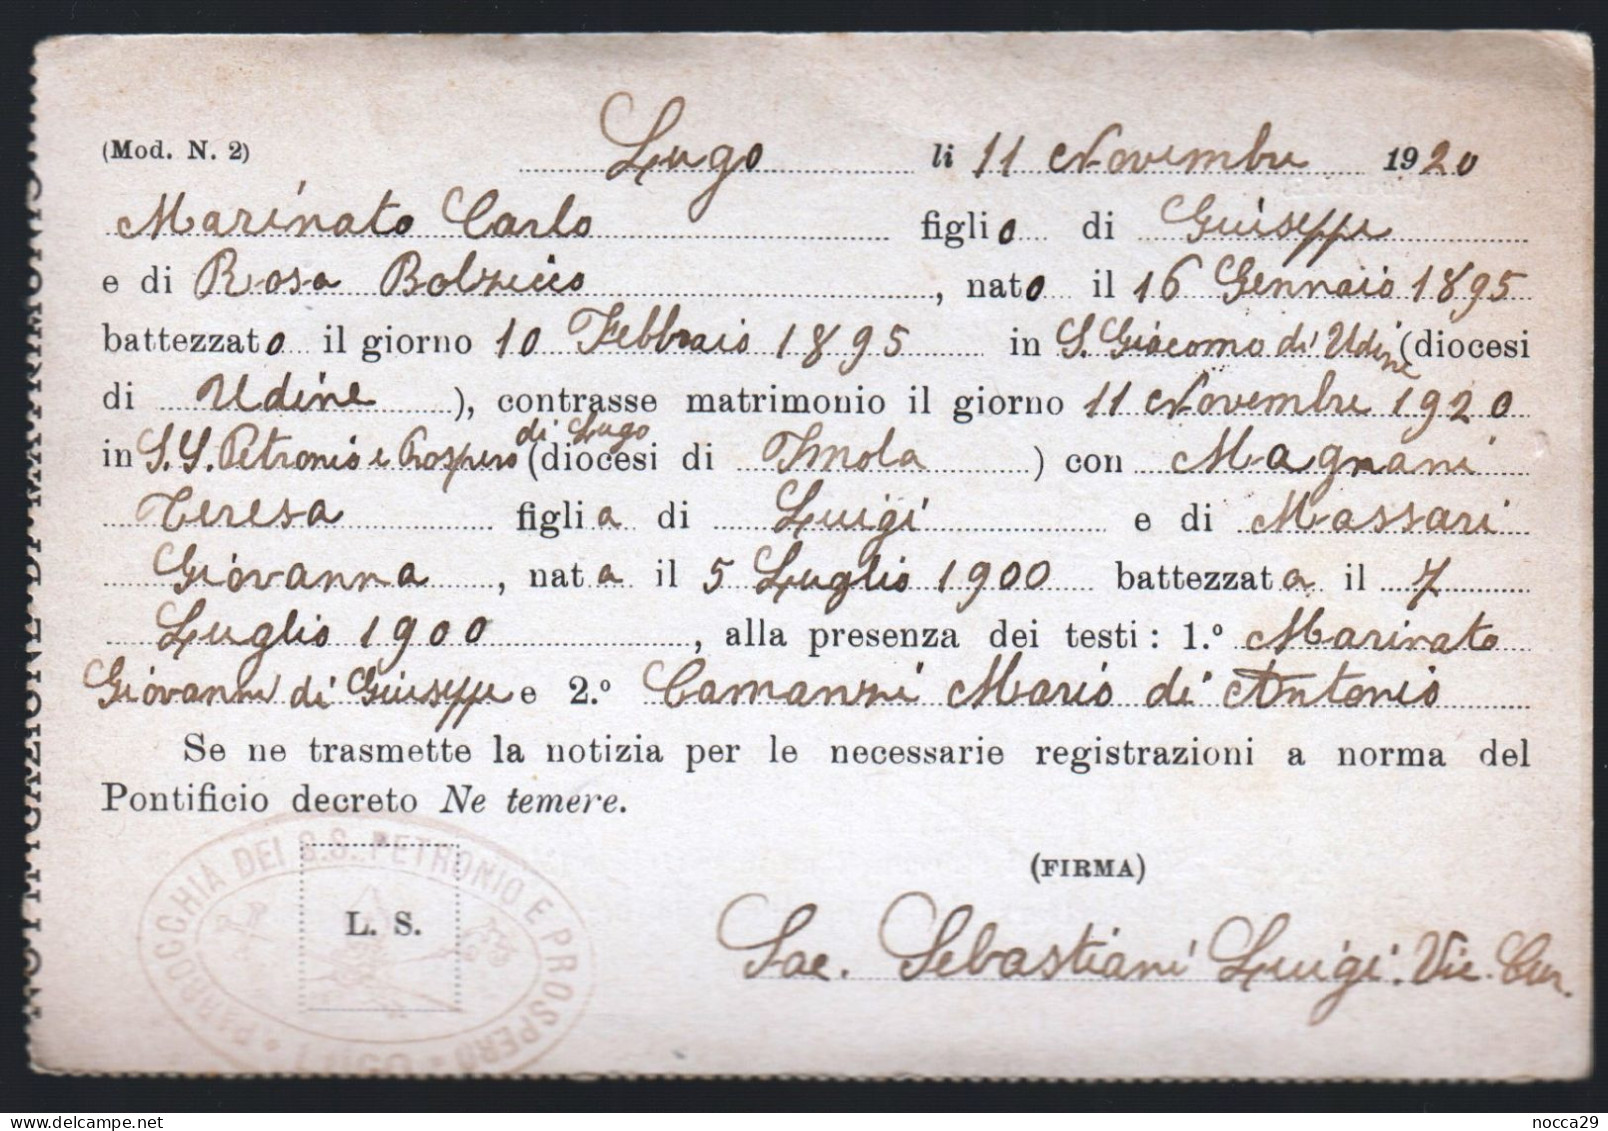 (Mod. N. 2) Lugo li 11 Novembre 1920
Marinato Carlo figlio di Giuseppe
e di Rosa Bolzicco, nato il 16 Gennaio 1895
battezzato il giorno 10 Febbraio 1895 in S. Giacomo di Udine (diocesi
di Udine), contrasse matrimonio il giorno 11 Novembre 1920
in S.S. Petronio e Prospero di Lugo (diocesi di Imola) con Magnani
Teresa figlia di Luigi e di Massari
Giovanna, nata il 5 Luglio 1900 battezzata il 7
Luglio 1900, alla presenza dei testi: 1.° Marinato
Giovanni di Giuseppe e 2.° Camanzi Mario di Antonio
Se ne trasmette la notizia per le necessarie registrazioni a norma del
Pontificio decreto Ne temere.
(FIRMA)
L. S.
Sac. Sebastiani Luigi. Vic. Cur.
PARROCCHIA DEI S.S. PETRONIO E PROSPERO * LUGO *
NOTIFICAZIONE DI MATRIMONIO
nocca29